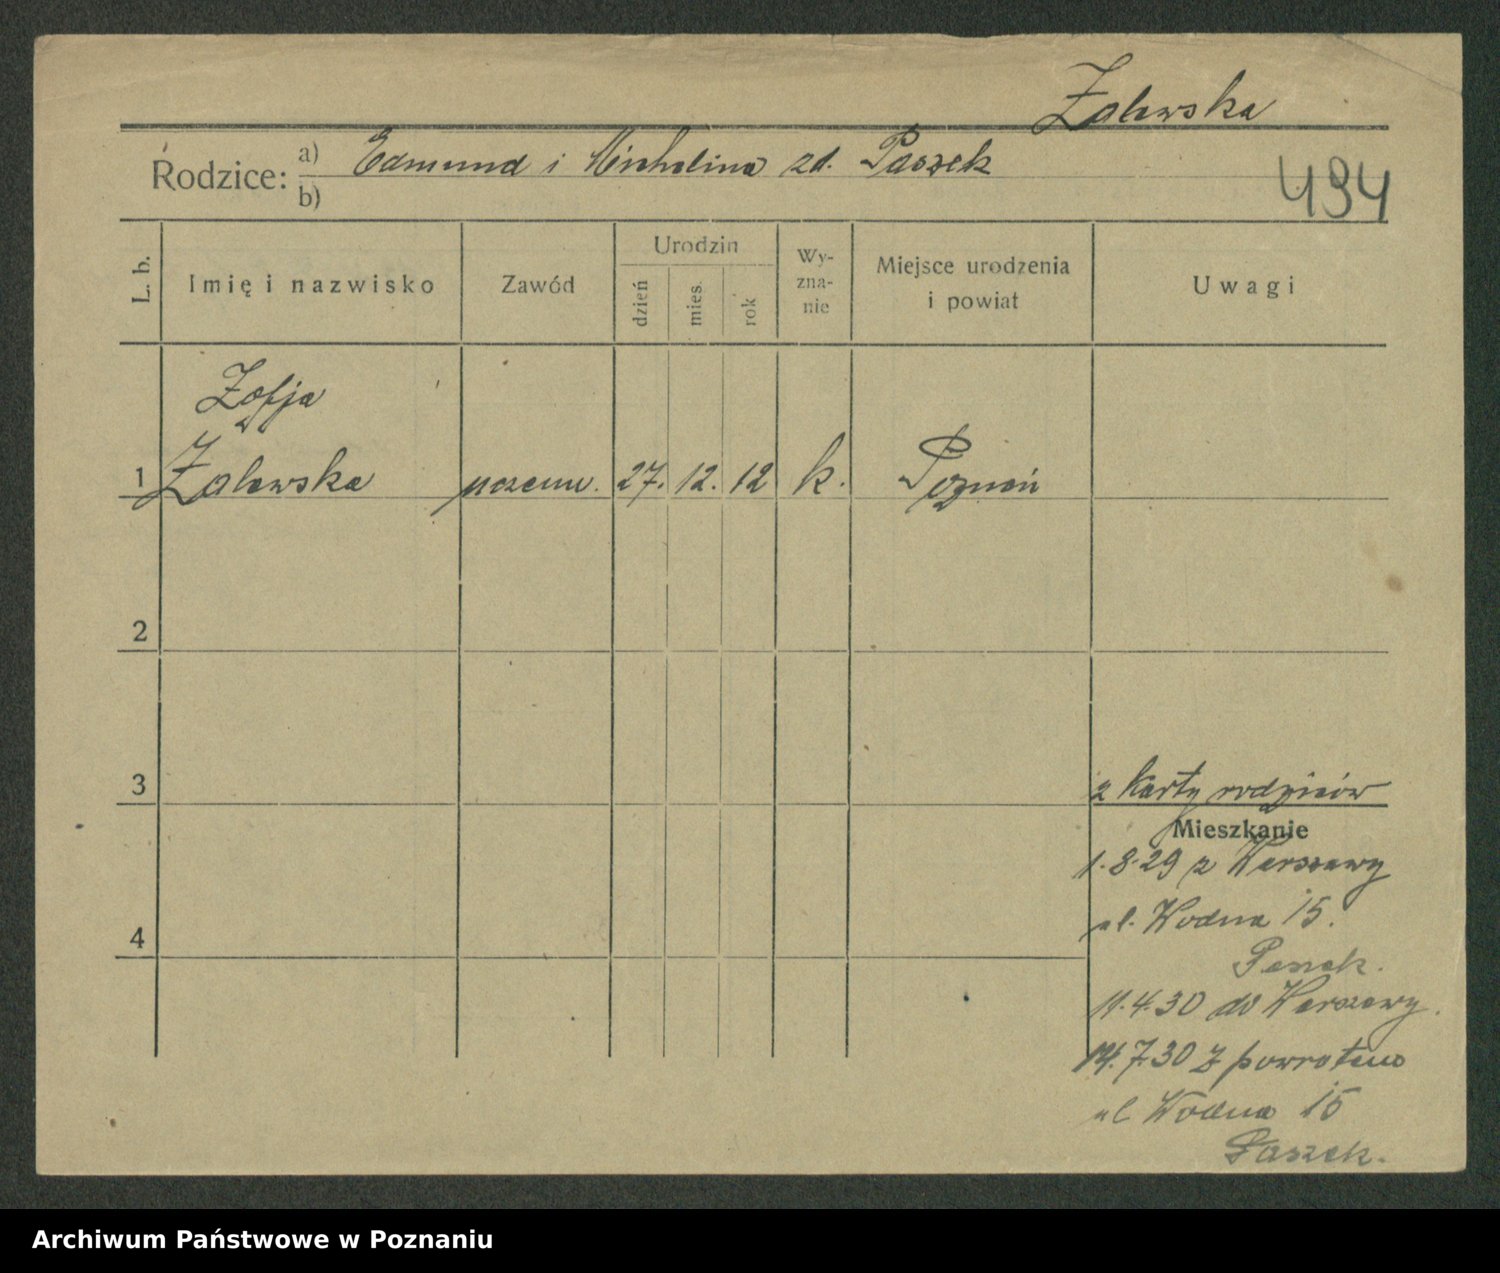 Zalewska
Rodzice: a) Edmund i Michalina zd. Paszek
b)
494
L. b.
Imię i nazwisko
Zawód
Urodzin
dzień
mies.
rok
Wy-
zna-
nie
Miejsce urodzenia
i powiat
Uwagi
Zofja
1 Zalewska uczenn. 27. 12. 12 k. Poznań
2
3
z karty rodziców
Mieszkanie
1.8.29 z Warszawy
ul. Wodna 15.
4
Paszek.
11.4.30 do Warszawy.
14.7.30 z powrotem
ul Wodna 15
Paszek.
Archiwum Państwowe w Poznaniu